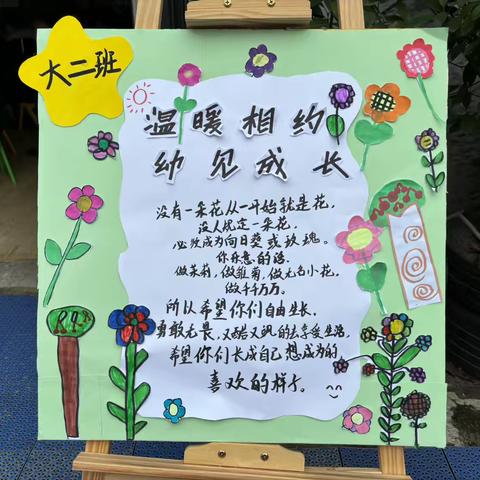 大二班
温暖相约
幼见成长
没有一朵花从一开始就是花,
没人规定一朵花,
必须成为向日葵或玫瑰。
你乐意的话,
做茉莉,做雏菊,做无名小花,
做千千万万。
所以希望你们自由生长,
勇敢无畏,又酷又飒的去享受生活,
希望你们长成自己想成为的
喜欢的样子。